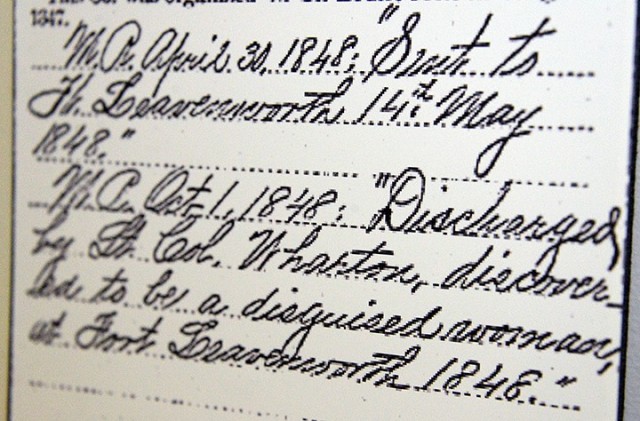 1847.
M.R. April 30, 1848: "Sent to
Ft. Leavenworth 14th May
1848."
M.R. Oct. 1, 1848: "Discharged
by Lt. Col. Wharton, discover-
ed to be a disguised woman,
at Fort Leavenworth 1848."